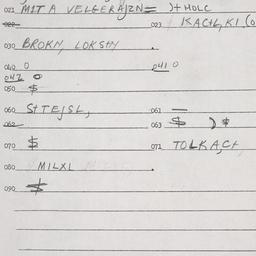 021 MIT A VELGERAJZN= )+HOLC
022 023 KACHL, KI, (O
030 BROKN, LOKSHY .
040 0 041 0
042 0
050 $
060 StTEJSL, 061 —
062 063 $ ) $
070 $ 071 TOLKA,CH,
080 MILXL .
090 $